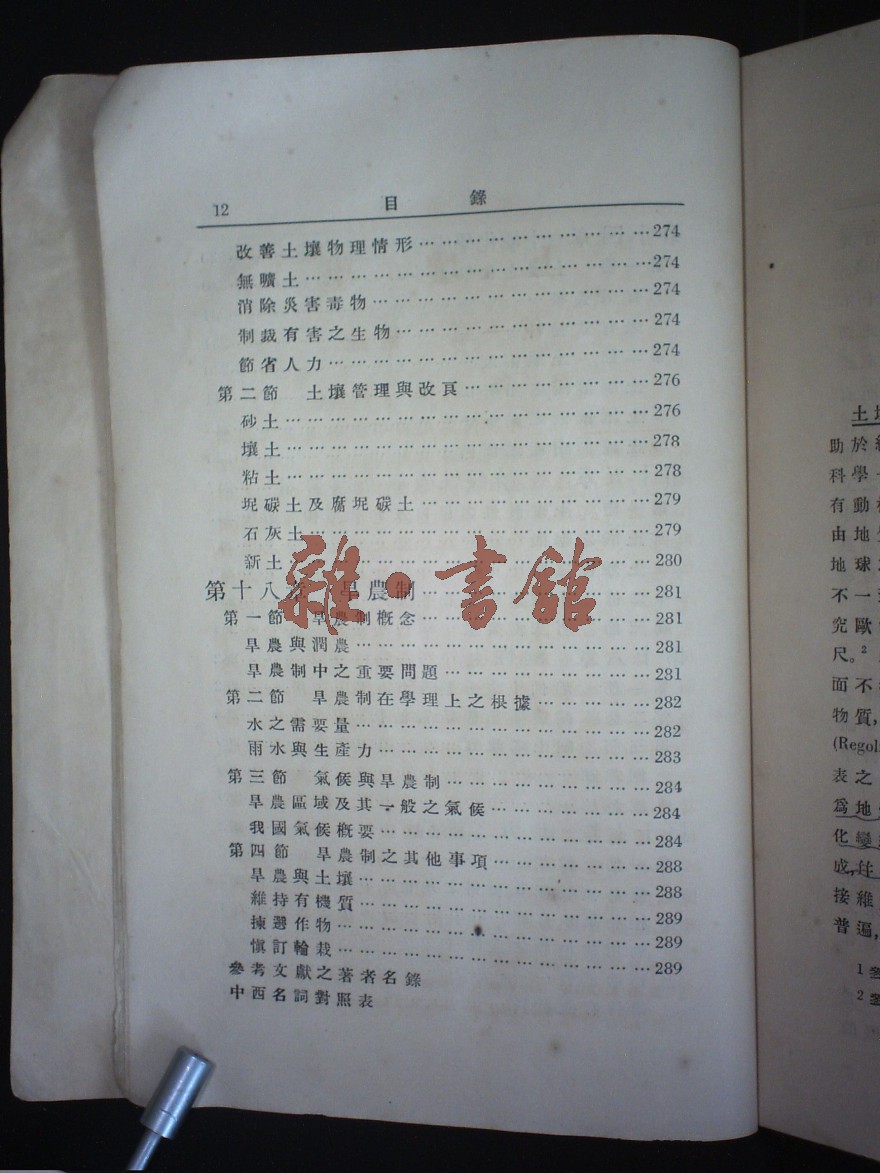 12 目 錄
改善土壤物理情形 … … … … … … … … … … … …274
無曠土… … … … … … … … … … … … … … … … …274
消除災害毒物… … … … … … … … … … … … … …274
制裁有害之生物… … … … … … … … … … … … …274
節省人力… … … … … … … … … … … … … … … …274
第二節 土壤管理與改良… … … … … … … … … …276
砂土… … … … … … … … … … … … … … … … … …276
壤土… … … … … … … … … … … … … … … … … …278
粘土… … … … … … … … … … … … … … … … … …278
坭碳土及腐坭碳土 … … … … … … … … … … … …279
石灰土… … … … … … … … … … … … … … … … …279
新土… … … … … … … … … … … … … … … … … …280
第十八章 旱農制 … … … … … … … … … … … …281
第一節 旱農制概念 … … … … … … … … … … … …281
旱農與潤農… … … … … … … … … … … … … … …281
旱農制中之重要問題 … … … … … … … … … … …281
第二節 旱農制在學理上之根據 … … … … … … …282
水之需要量… … … … … … … … … … … … … … …282
雨水與生產力… … … … … … … … … … … … … …283
第三節 氣候與旱農制 … … … … … … … … … … …284
旱農區域及其一般之氣候… … … … … … … … …284
我國氣候概要… … … … … … … … … … … … … …284
第四節 旱農制之其他事項… … … … … … … … …288
旱農與土壤… … … … … … … … … … … … … … …288
維持有機質… … … … … … … … … … … … … … …289
揀選作物… … … … … … … … … … … … … … … …289
愼訂輪栽… … … … … … … … … … … … … … … …289
參考文獻之著者名錄
中西名詞對照表
雜·書館
土
助於
科學
有動
由地
地球
不一
究歐
尺。²
面不
物質,
(Regol
表之
爲地
化變
成,
接維
普遍,
1
2